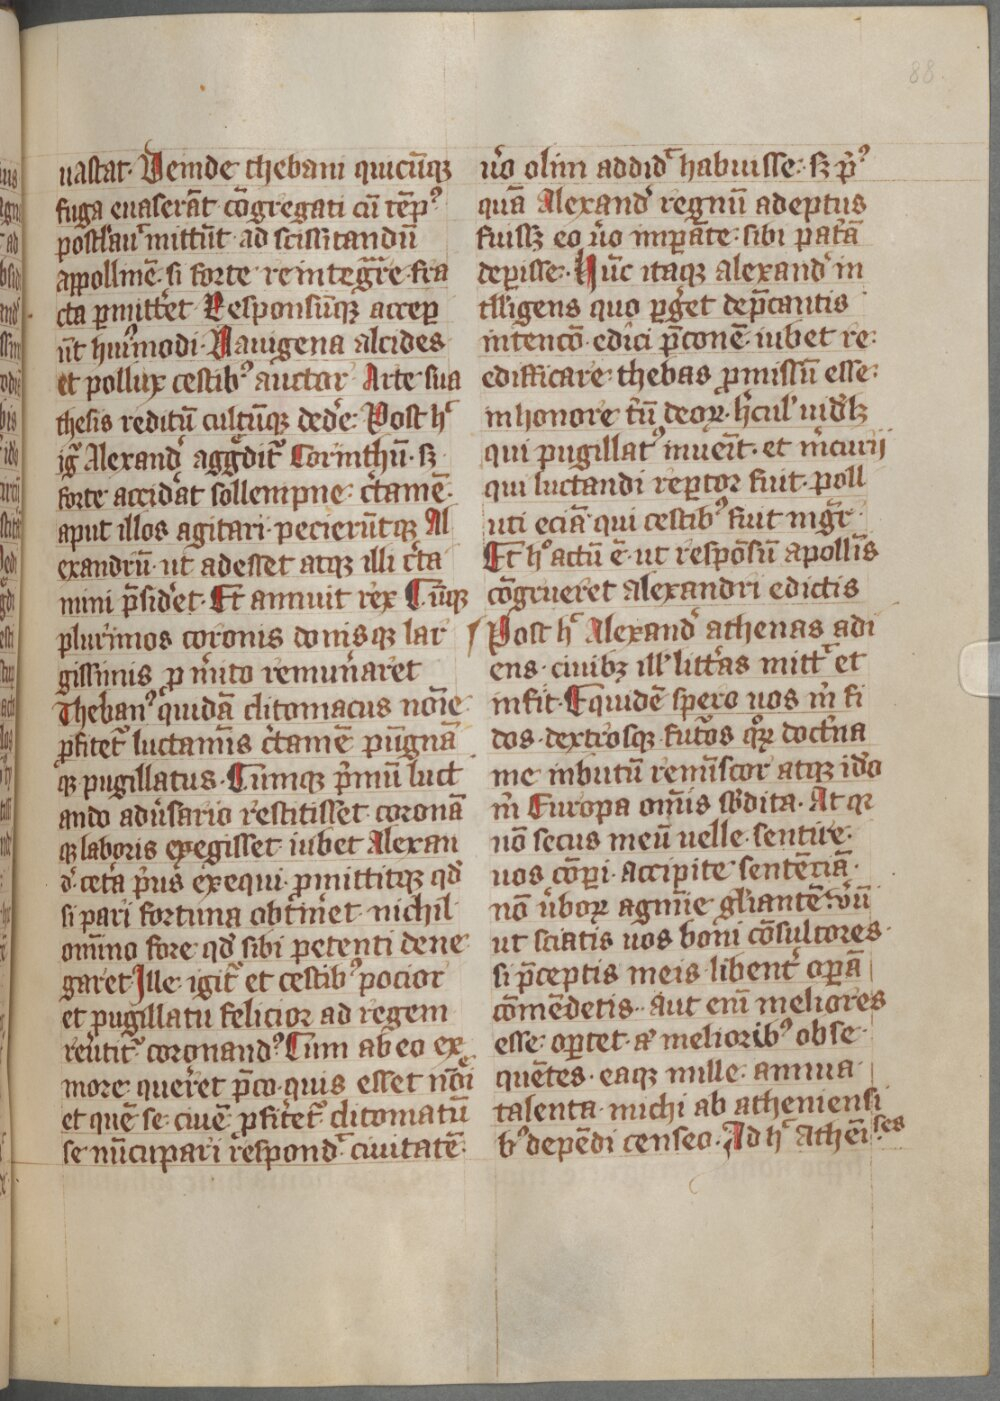 88
uastat. Deinde thebani quicūqꝫ
fuga euaserāt cōgregati cū tēpꝰ
mittūt ad sciscitandū
appollinē. si forte reintegrare fra
cta ꝑmittʼet Responsūqꝫ accep
ūt huiꝰmodi. Nauigena alcides
et pollux cestibꝰ auctor Arte sua
thesis reditū cultūqꝫ dedʼe. Post hͨ
igͥ Alexandʼ aggͣditʼ Corinthū. sꝫ
forte accidʼat sollempne cʼtamē.
aput illos agitari. pecierūtqꝫ Al
exandrū. ut adesset atqꝫ illi cʼta
mini p̄sidʼet. Et annuit rex Cūqꝫ
plurimos coronis donisqꝫ lar
gissimis ꝓ mʼito remunʼaret
Thebanꝰ quidā clitomacus noīe
ꝓfitetʼ luctamīs cʼtamē pūgnā
qꝫ pugillatus. Cumqꝫ pʼmū luct
ando adūsario restitisset coronā
qꝫ laboris exegisset iubet Alexan
dʼ. cetʼa pʼus exequi. ꝓmittitqꝫ qđ
si pari fortuna obtʼinʼet nichil
omīno fore qđ sibi petenti dene
garet Ille igitʼ et cestibꝰ pocior
et pugillatu felicior ad regem
reūtitʼ coronandꝰ Cum ab eo ex
more querʼet p̄co quis esset nōī
et quē se ciuē ꝓfitʼetʼ clitomatū
se nūcupari respondʼ ciuitatē
ūo olim addidʼ habuisse. sꝫ pꝰ
quā Alexandʼ regnū adeptus
fuissꝫ eo ūo impʼāte sibi patʼā
deꝑisse. Hūc itaqꝫ alexandʼ in
tʼlligens quo ꝑgʼet dep̄cantis
intencō. edici p̄conē iubet re
edifficare thebas ꝓmissū esse
in honore tʼū deoꝝ. hʼculʼ uidʼlꝫ
qui pugillatꝰ inuenʼit. et mʼcurij
qui luctandi reꝑtor fuit. poll
uti eciā qui cestibꝰ fiut mgʼr
Et hͦ actū ē. ut respōsū apollīs
cōgrueret Alexandri edictis
Post hͨ Alexandʼ athenas adi
ens. ciuibꝫ illʼ littʼas mittʼ et
infit. Equidē spero uos mͥ fi
dos. dextrosqꝫ futʼos qꝛ doctʼna
me inbutū remīscor atqꝫ idʼo
mͥ Europa om̄is sb̄dita. At qꝛ
nō secus meū uelle sentire
uos cōꝑi. accipite sentēciā.
nō ūboꝝ agmīe glʼiantē. ūū
ut sciatis uos boni cōsultores.
si p̄ceptis meis libentʼ opʼā
cōmēdetis. aut enī meliores
esse oꝑtet. aʼ melioribꝰ obse
quētes. eaqꝫ mille annua
talenta michi ab atheniensi
bꝰ depēdi censeo. Ad hͨ Athēiēses